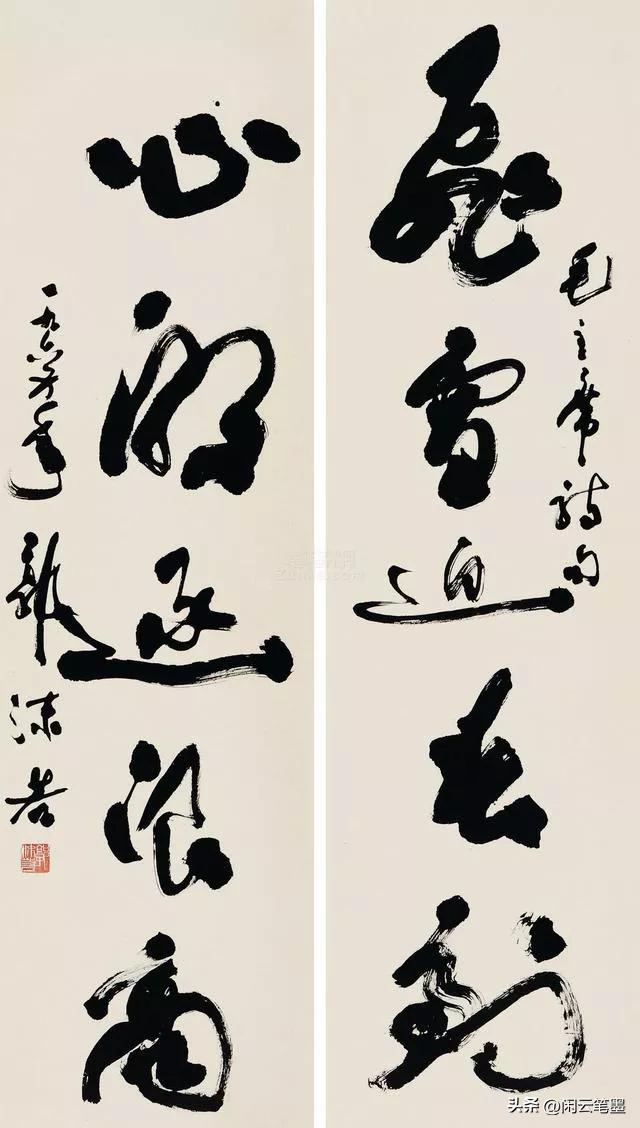 毛主席詩句
飛雪迎春到
心潮逐浪高
一九六五年 郭沫若
头条 @闲云笔墨